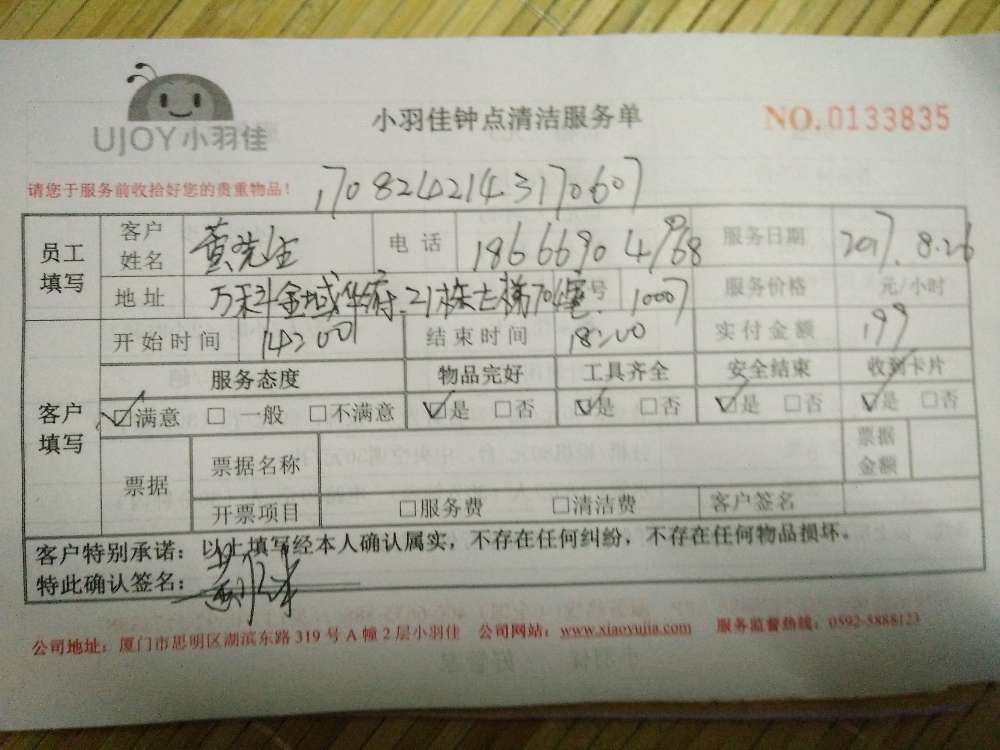 UJOY小羽佳
小羽佳钟点清洁服务单
NO.0133835
请您于服务前收拾好您的贵重物品!
1708242143170607
员工填写 客户姓名 黄先生 电话 服务日期 2017.8.26
地址 万科金域华府.21栋七梯704 号 10007 服务价格 元/小时
客户填写 开始时间 14:00 结束时间 18:00 实付金额 199
服务态度 物品完好 工具齐全 安全结束 收到卡片
☑满意 □一般 □不满意 ☑是 □否 ☑是 □否 ☑是 □否 ☑是 □否
票据 票据名称 票据金额
开票项目 □服务费 □清洁费 客户签名
客户特别承诺：以上填写经本人确认属实，不存在任何纠纷，不存在任何物品损坏。
特此确认签名：
公司地址：厦门市思明区湖滨东路 319 号 A 幢 2 层小羽佳 公司网站：www.xiaoyujia.com 服务监督热线：0592-5888123